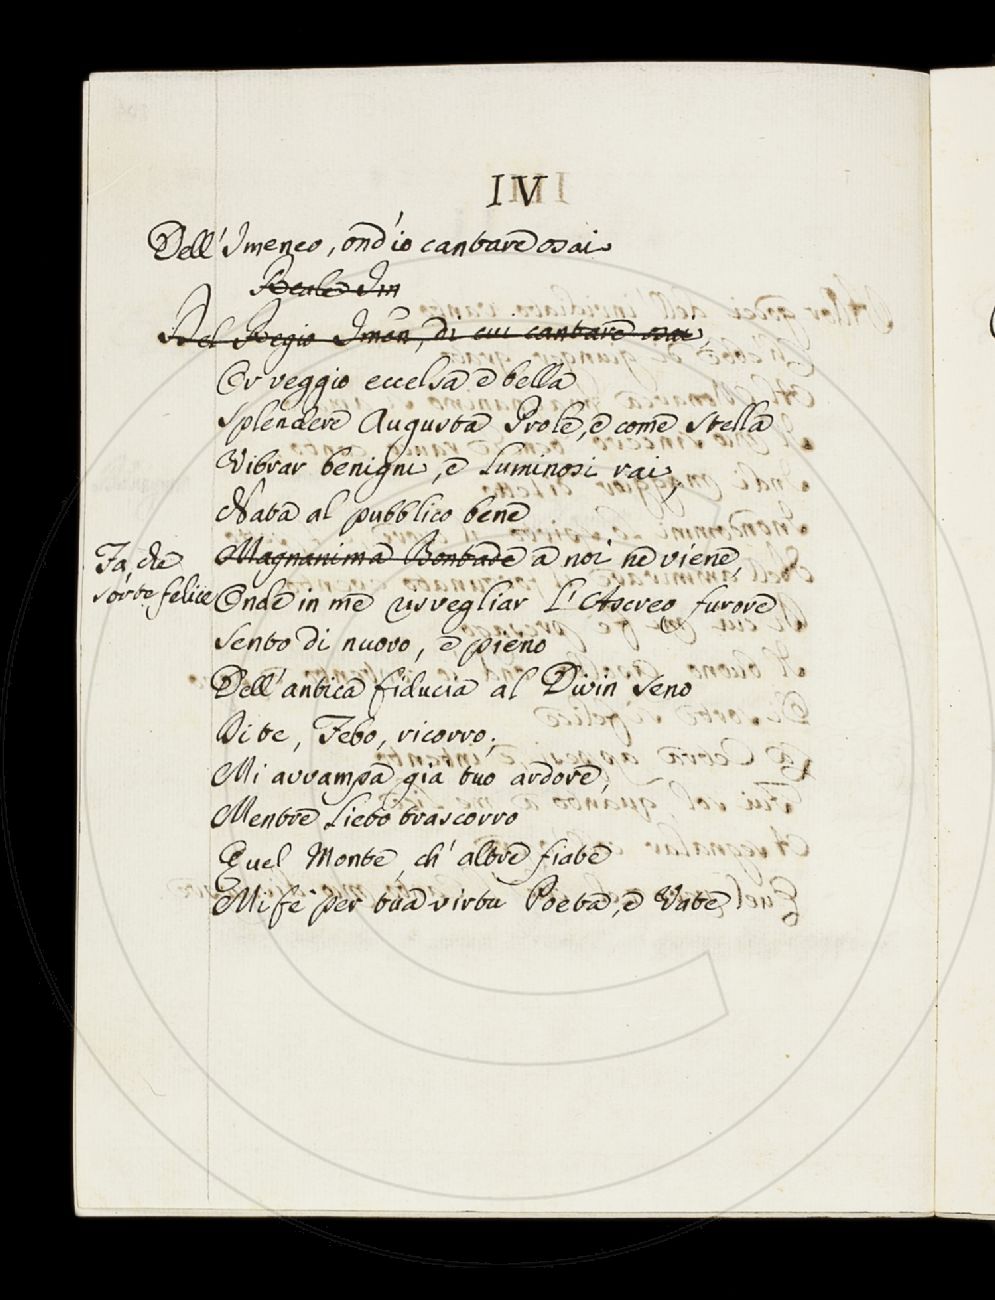 IV
Dell' Imeneo, ond'io cantare osai
Reale Im
Del Regio Imen, di cui cantare osai,
Or veggio eccelsa e bella
Splendere Augusta Prole, e come stella
Vibrar benigni, e luminosi rai,
Nata al pubblico bene
Fa, che
Magnanima Bontade a noi ne viene,
sorte felice
Onde in me risvegliar L'Ascreo furore
Sento di nuovo, e pieno
Dell' antica fiducia al Divin seno
Di te, Febo, ricorro;
Mi avvampa gia tuo ardore,
Mentre Lieto trascorro
Quel Monte, ch' altre fiate
Mi fe per tua virtu Poeta, e Vate